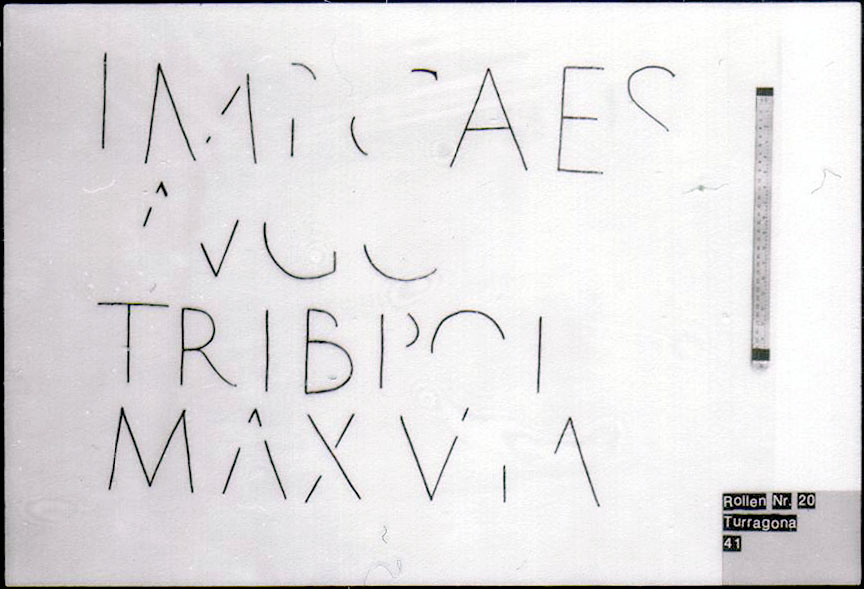 IMP CAES
AVGG
TRIB POT
MAX VIA
Rollen Nr. 20
Turragona
41